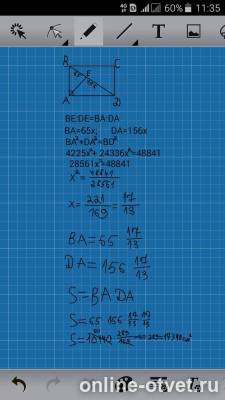 4G 60% 11:35
T
B C
E
65x 156x
A D
BE:DE=BA:DA
BA=65x; DA=156x
BA²+DA²=BD²
4225x²+ 24336x²=48841
28561x²=48841
x²= 48841/28561
x= 221/169 = 17/13
BA=65 17/13
DA=156 17/13
S=BA DA
S=65 156 17/13 17/13
S=10140 289/169
online-otvet.ru